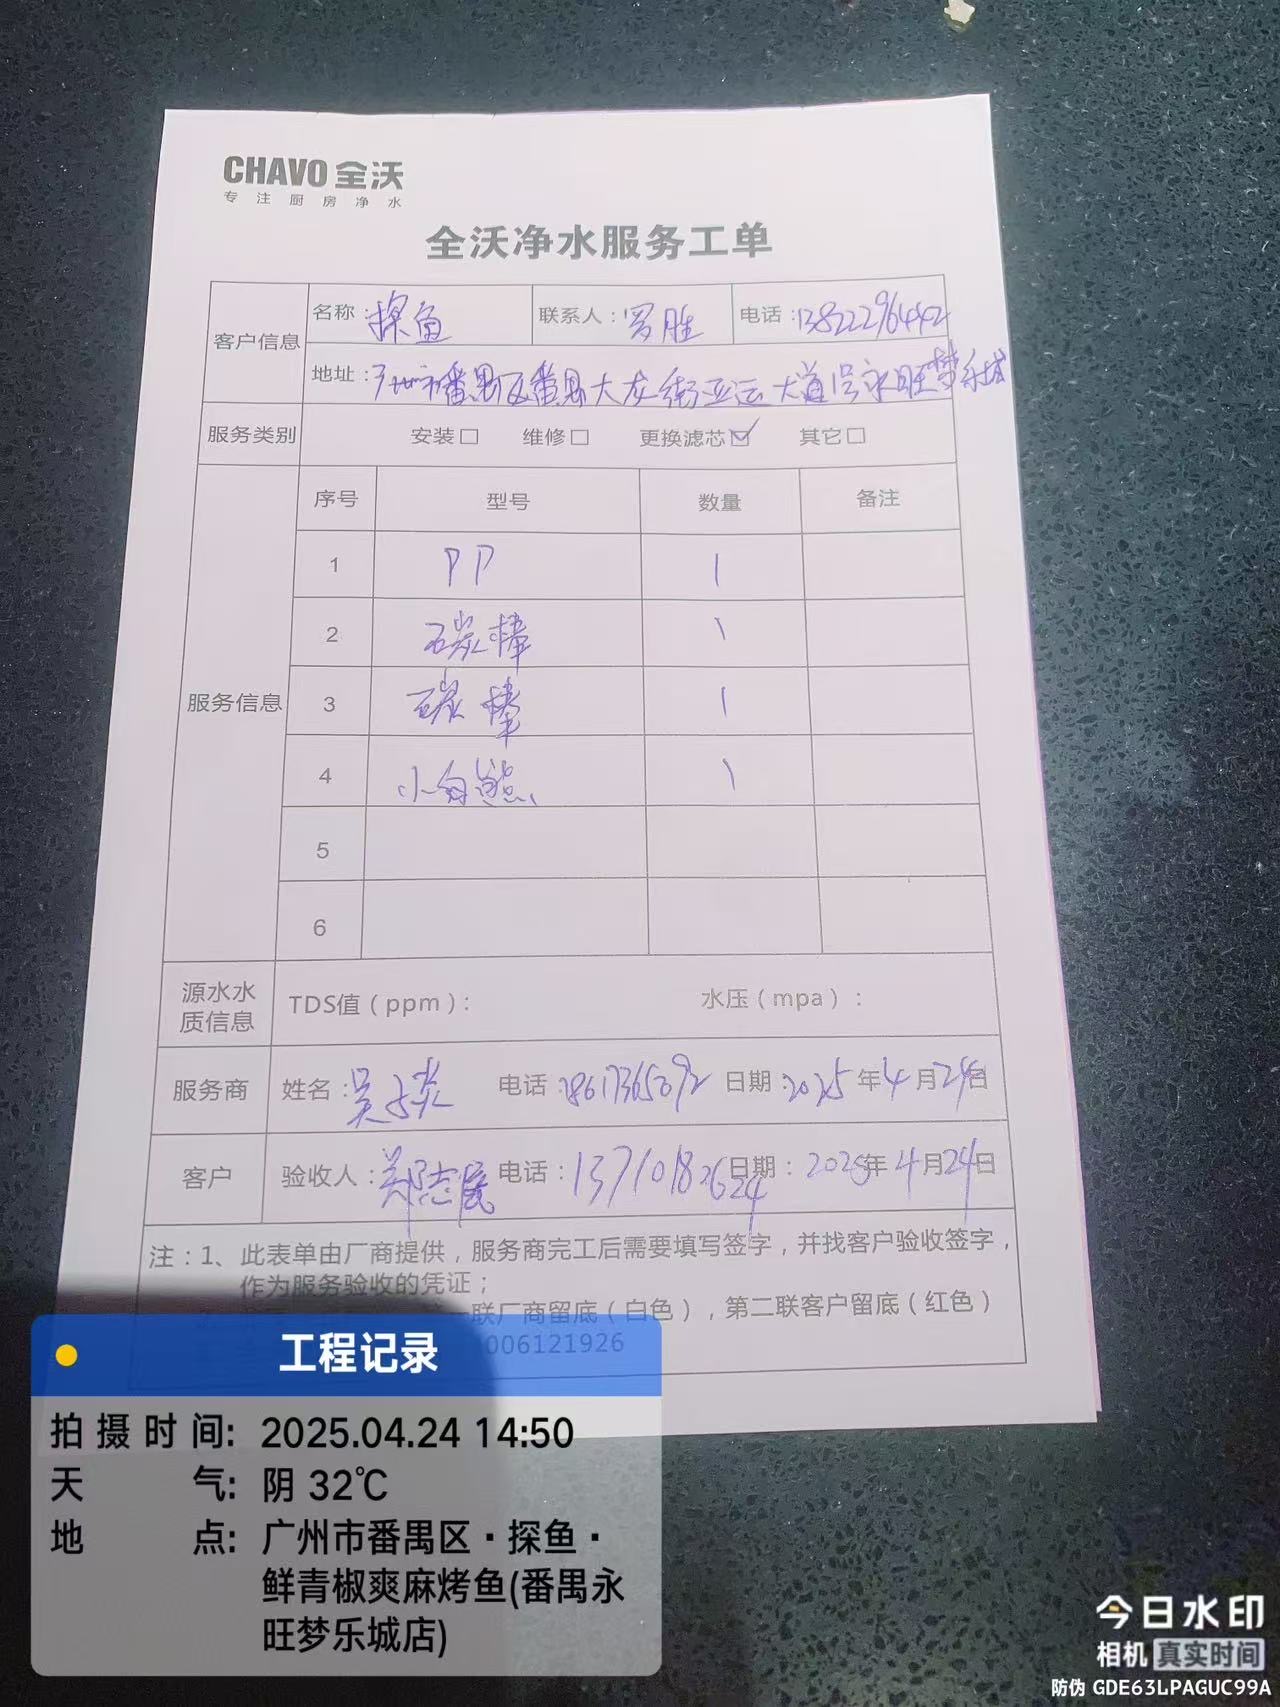 CHAVO 全沃
专注厨房净水
全沃净水服务工单
客户信息
名称：探鱼 联系人：罗胜 电话：13822296442
地址：广州市番禺区番禺大龙街亚运大道号永旺梦乐城
服务类别 安装□ 维修□ 更换滤芯☑ 其它□
服务信息
序号 型号 数量 备注
1 PP 1
2 碳棒 1
3 碳棒 1
4 小白熊 1
5
6
源水水质信息 TDS值（ppm）： 水压（mpa）：
服务商 姓名：吴 炎 电话： 日期：2025年4月24日
客户 验收人：郑志展 电话：13710182624 日期：2025年4月24日
注：1、此表单由厂商提供，服务商完工后需要填写签字，并找客户验收签字，
作为服务验收的凭证；
联厂商留底（白色），第二联客户留底（红色）
006121926
工程记录
拍摄时间: 2025.04.24 14:50
天气: 阴 32℃
地点: 广州市番禺区·探鱼·
鲜青椒爽麻烤鱼(番禺永
旺梦乐城店)
今日水印
相机 真实时间
防伪 GDE63LPAGUC99A